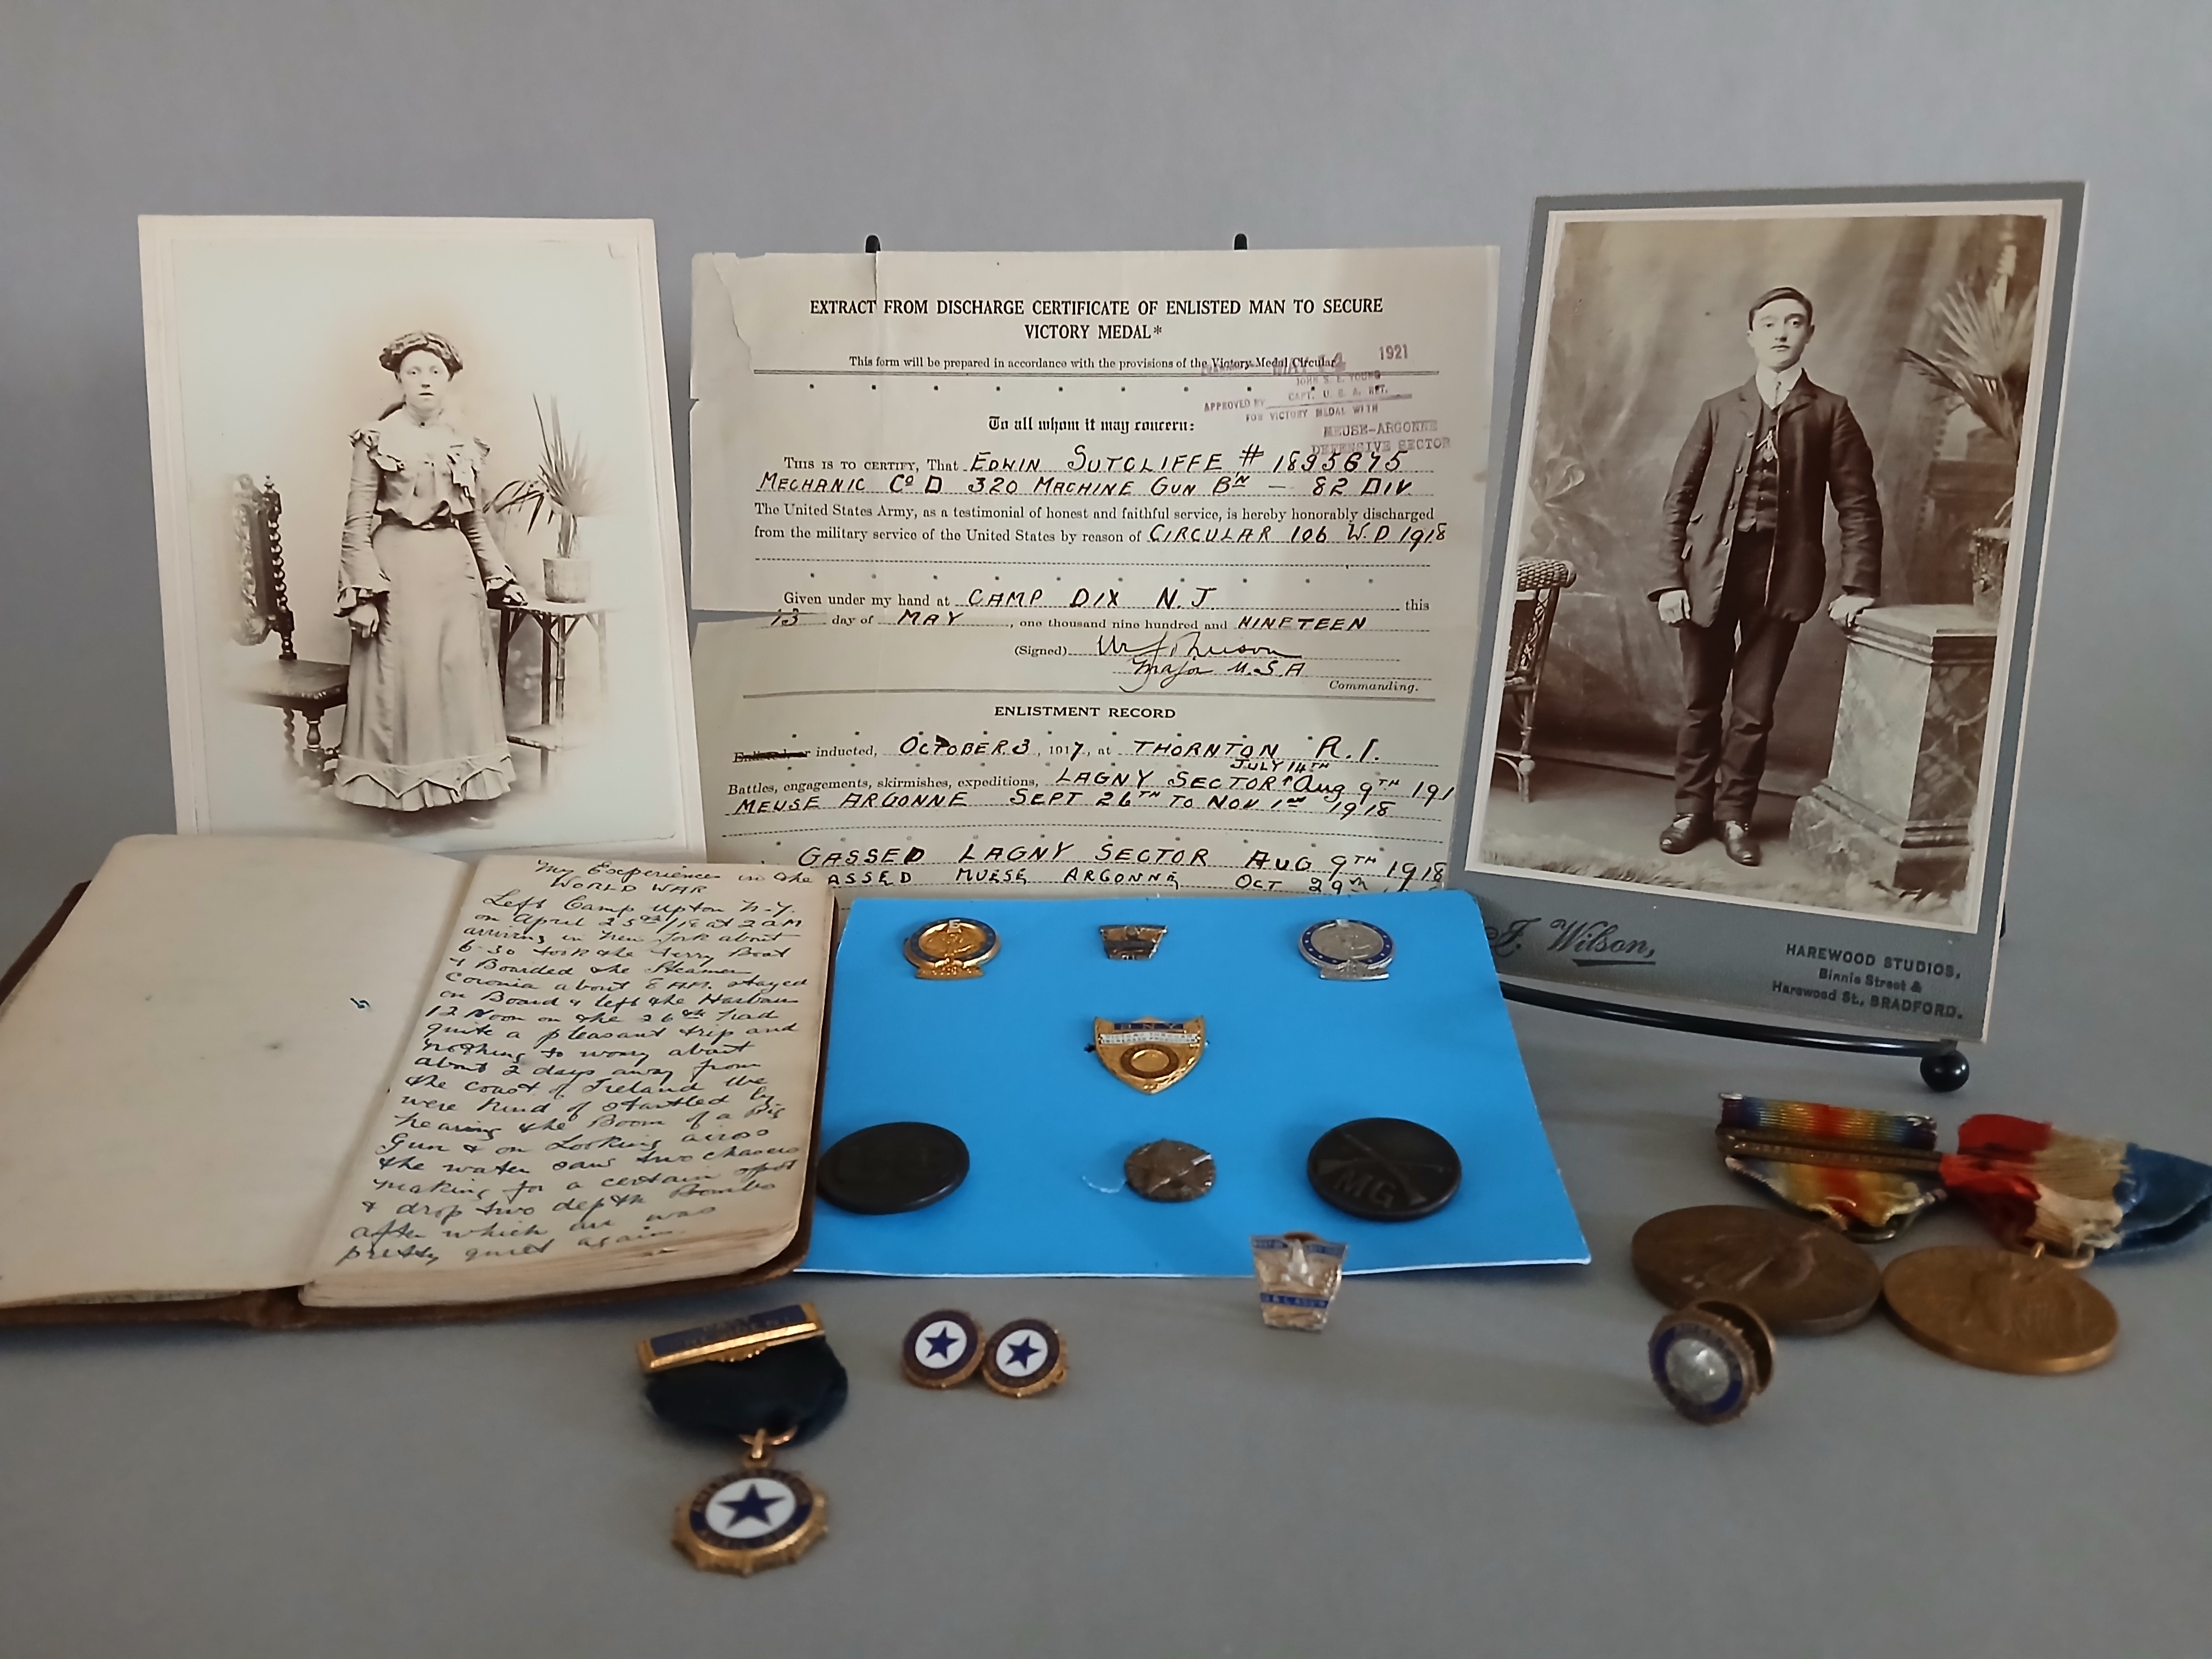 EXTRACT FROM DISCHARGE CERTIFICATE OF ENLISTED MAN TO SECURE
VICTORY MEDAL*
This form will be prepared in accordance with the provisions of the Victory Medal Circular
1921
JOHN S. E. YOUNG
CAPT. U. S. A. RET.
APPROVED BY
FOR VICTORY MEDAL WITH
MEUSE-ARGONNE
DEFENSIVE SECTOR
To all whom it may concern:
THIS IS TO CERTIFY, That EDWIN SUTCLIFFE # 1895675
MECHANIC Co D 320 MACHINE GUN BN — 82 DIV.
The United States Army, as a testimonial of honest and faithful service, is hereby honorably discharged
from the military service of the United States by reason of CIRCULAR 106 W.D 1918
Given under my hand at CAMP DIX N.J. this
13 day of MAY, one thousand nine hundred and NINETEEN
(Signed)
Major U.S.A
Commanding.
ENLISTMENT RECORD
Enlisted, or inducted, OCTOBER 3, 1917, at THORNTON R.I.
JULY 14TH
Battles, engagements, skirmishes, expeditions, LAGNY SECTOR Aug 9TH 191
MEUSE ARGONNE SEPT 26TH TO NOV 1ST 1918
GASSED LAGNY SECTOR AUG 9TH 1918
ASSED MUESE ARGONNE OCT 29TH
My Experience in the
WORLD WAR
Left Camp Upton N.Y.
on April 25th/18 at 2 AM
arriving in New York about
6-30 took the Ferry Boat
& Boarded the Steamer
Coronia about 8 AM. stayed
on Board & left the Harbour
12 Noon on the 26th had
quite a pleasant trip and
nothing to worry about
about 2 days away from
the coast of Ireland we
were kind of startled by
hearing the Boom of a Big
Gun & on Looking across
the water saw two chasers
making for a certain spot
& drop two depth Bombs
after which all was
pretty quiet again.
J. Wilson,
HAREWOOD STUDIOS,
Binnie Street &
Harewood St., BRADFORD.
MG